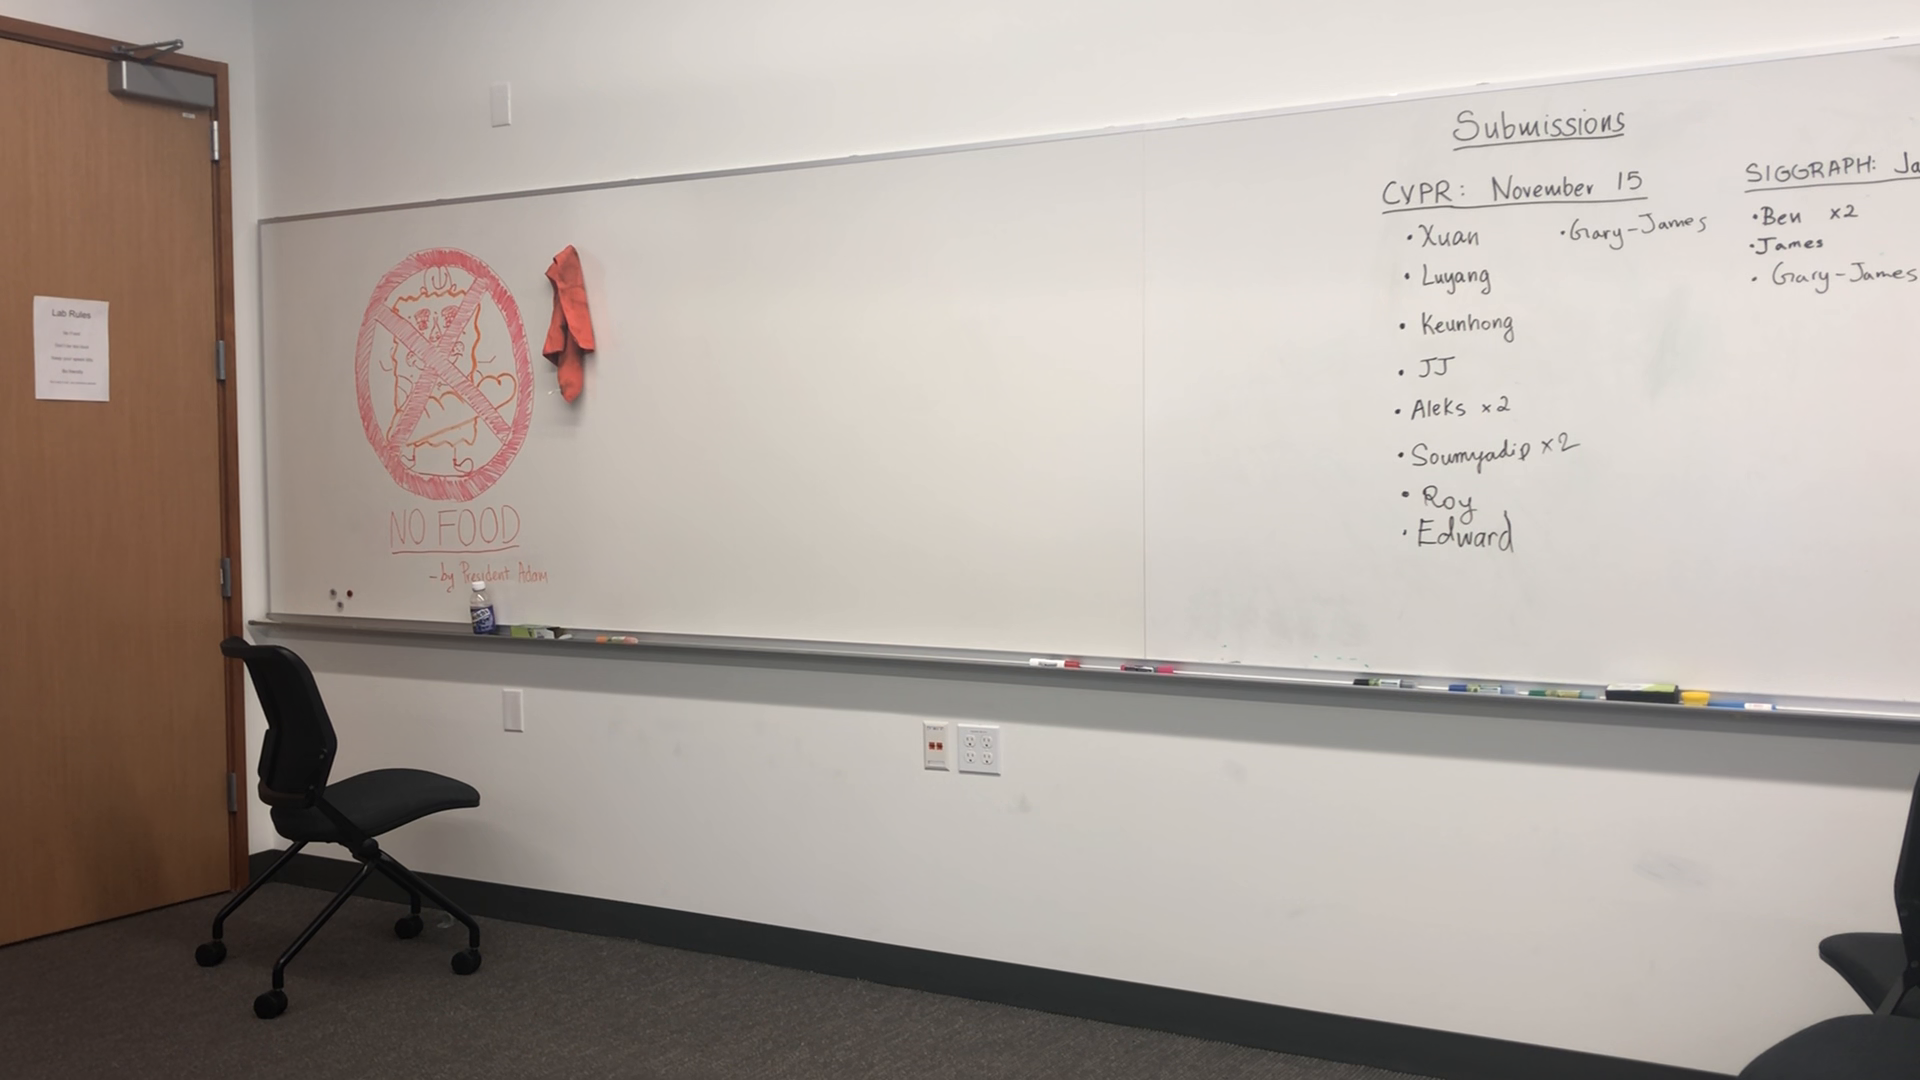 Lab Rules
NO FOOD
- by President Adam
Submissions
CVPR: November 15
• Xuan
• Luyang
• Keunhong
• JJ
• Aleks x2
• Soumyadip x2
• Roy
• Edward
• Gary-James
SIGGRAPH: Ja
• Ben x2
• James
• Gary-James